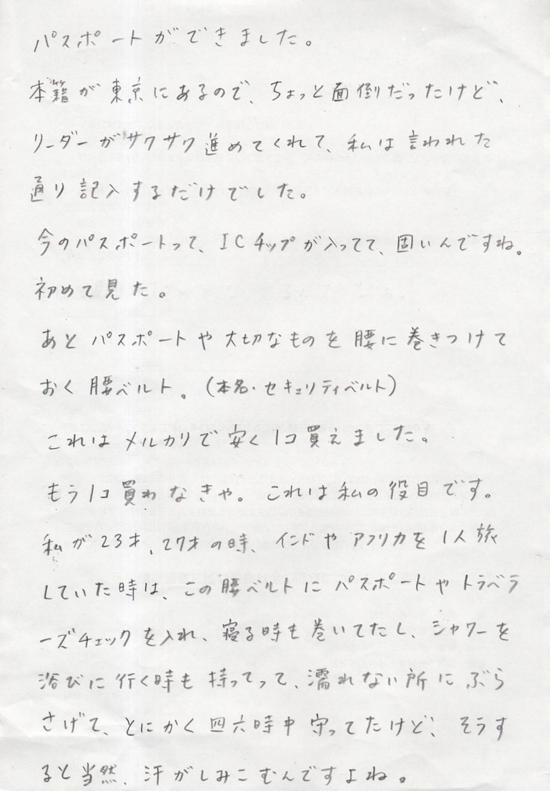 パスポートができました。
本籍が東京にあるので、ちょっと面倒だったけど、
リーダーがサクサク進めてくれて、私は言われた
通り記入するだけでした。
今のパスポートって、ICチップが入ってて、固いんですね。
初めて見た。
あとパスポートや大切なものを腰に巻きつけて
おく腰ベルト。(本名・セキュリティベルト)
これはメルカリで安く1コ買えました。
もう1コ買わなきゃ。これは私の役目です。
私が23才、27才の時、インドやアフリカを1人旅
していた時は、この腰ベルトにパスポートやトラベラ
ーズチェックを入れ、寝る時も巻いてたし、シャワーを
浴びに行く時も持ってって、濡れない所にぶら
さげて、とにかく四六時中守ってたけど、そうす
ると当然、汗がしみこむんですよね。